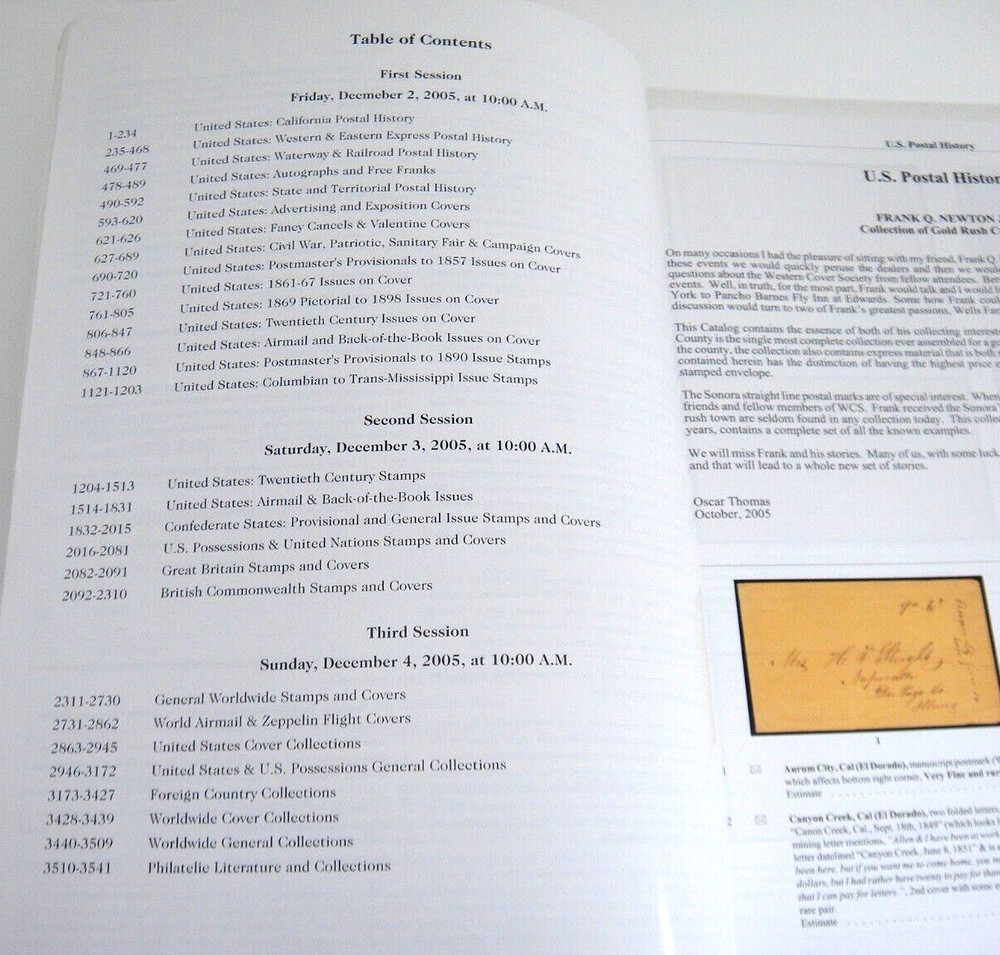 Table of Contents
First Session
Friday, Decmeber 2, 2005, at 10:00 A.M.
1-234 United States: California Postal History
235-468 United States: Western & Eastern Express Postal History
469-477 United States: Waterway & Railroad Postal History
478-489 United States: Autographs and Free Franks
490-592 United States: State and Territorial Postal History
593-620 United States: Advertising and Exposition Covers
621-626 United States: Fancy Cancels & Valentine Covers
627-689 United States: Civil War, Patriotic, Sanitary Fair & Campaign Covers
690-720 United States: Postmaster's Provisionals to 1857 Issues on Cover
721-760 United States: 1861-67 Issues on Cover
761-805 United States: 1869 Pictorial to 1898 Issues on Cover
806-847 United States: Twentieth Century Issues on Cover
848-866 United States: Airmail and Back-of-the-Book Issues on Cover
867-1120 United States: Postmaster's Provisionals to 1890 Issue Stamps
1121-1203 United States: Columbian to Trans-Mississippi Issue Stamps
Second Session
Saturday, December 3, 2005, at 10:00 A.M.
1204-1513 United States: Twentieth Century Stamps
1514-1831 United States: Airmail & Back-of-the-Book Issues
1832-2015 Confederate States: Provisional and General Issue Stamps and Covers
2016-2081 U.S. Possessions & United Nations Stamps and Covers
2082-2091 Great Britain Stamps and Covers
2092-2310 British Commonwealth Stamps and Covers
Third Session
Sunday, December 4, 2005, at 10:00 A.M.
2311-2730 General Worldwide Stamps and Covers
2731-2862 World Airmail & Zeppelin Flight Covers
2863-2945 United States Cover Collections
2946-3172 United States & U.S. Possessions General Collections
3173-3427 Foreign Country Collections
3428-3439 Worldwide Cover Collections
3440-3509 Worldwide General Collections
3510-3541 Philatelic Literature and Collections
U.S. Postal History
U.S. Postal Histor
FRANK Q. NEWTON
Collection of Gold Rush C
On many occasions I had the pleasure of sitting with my friend, Frank Q.
these events we would quickly peruse the dealers and then we woul
questions about the Western Cover Society from fellow attendees. Bet
events. Well, in truth, for the most part, Frank would talk and I would li
York to Pancho Barnes Fly Inn at Edwards. Some how Frank coul
discussion would turn to two of Frank's greatest passions, Wells Far
This Catalog contains the essence of both of his collecting interests
County is the single most complete collection ever assembled for a go
the county, the collection also contains express material that is both
contained herein has the distinction of having the highest price
stamped envelope.
The Sonora straight line postal marks are of special interest. When
friends and fellow members of WCS. Frank received the Sonora
rush town are seldom found in any collection today. This colle
years, contains a complete set of all the known examples.
We will miss Frank and his stories. Many of us, with some luck
and that will lead to a whole new set of stories.
Oscar Thomas
October, 2005
1
1 Aurum City, Cal (El Dorado), manuscript postmark
which affects bottom right corner, Very Fine and rar
Estimate
2 Canyon Creek, Cal (El Dorado), two folded letters,
"Canon Creek, Cal., Sept. 18th, 1849" (which looks
mining letter mentions, "Allen & I have been at work
letter datelined "Canyon Creek, June 8, 1851" & is
been here, but if you want me to come home, you
dollars, but I had rather have twenty to pay for than
that I can pay for letters.", 2nd cover with some
rare pair.
Estimate